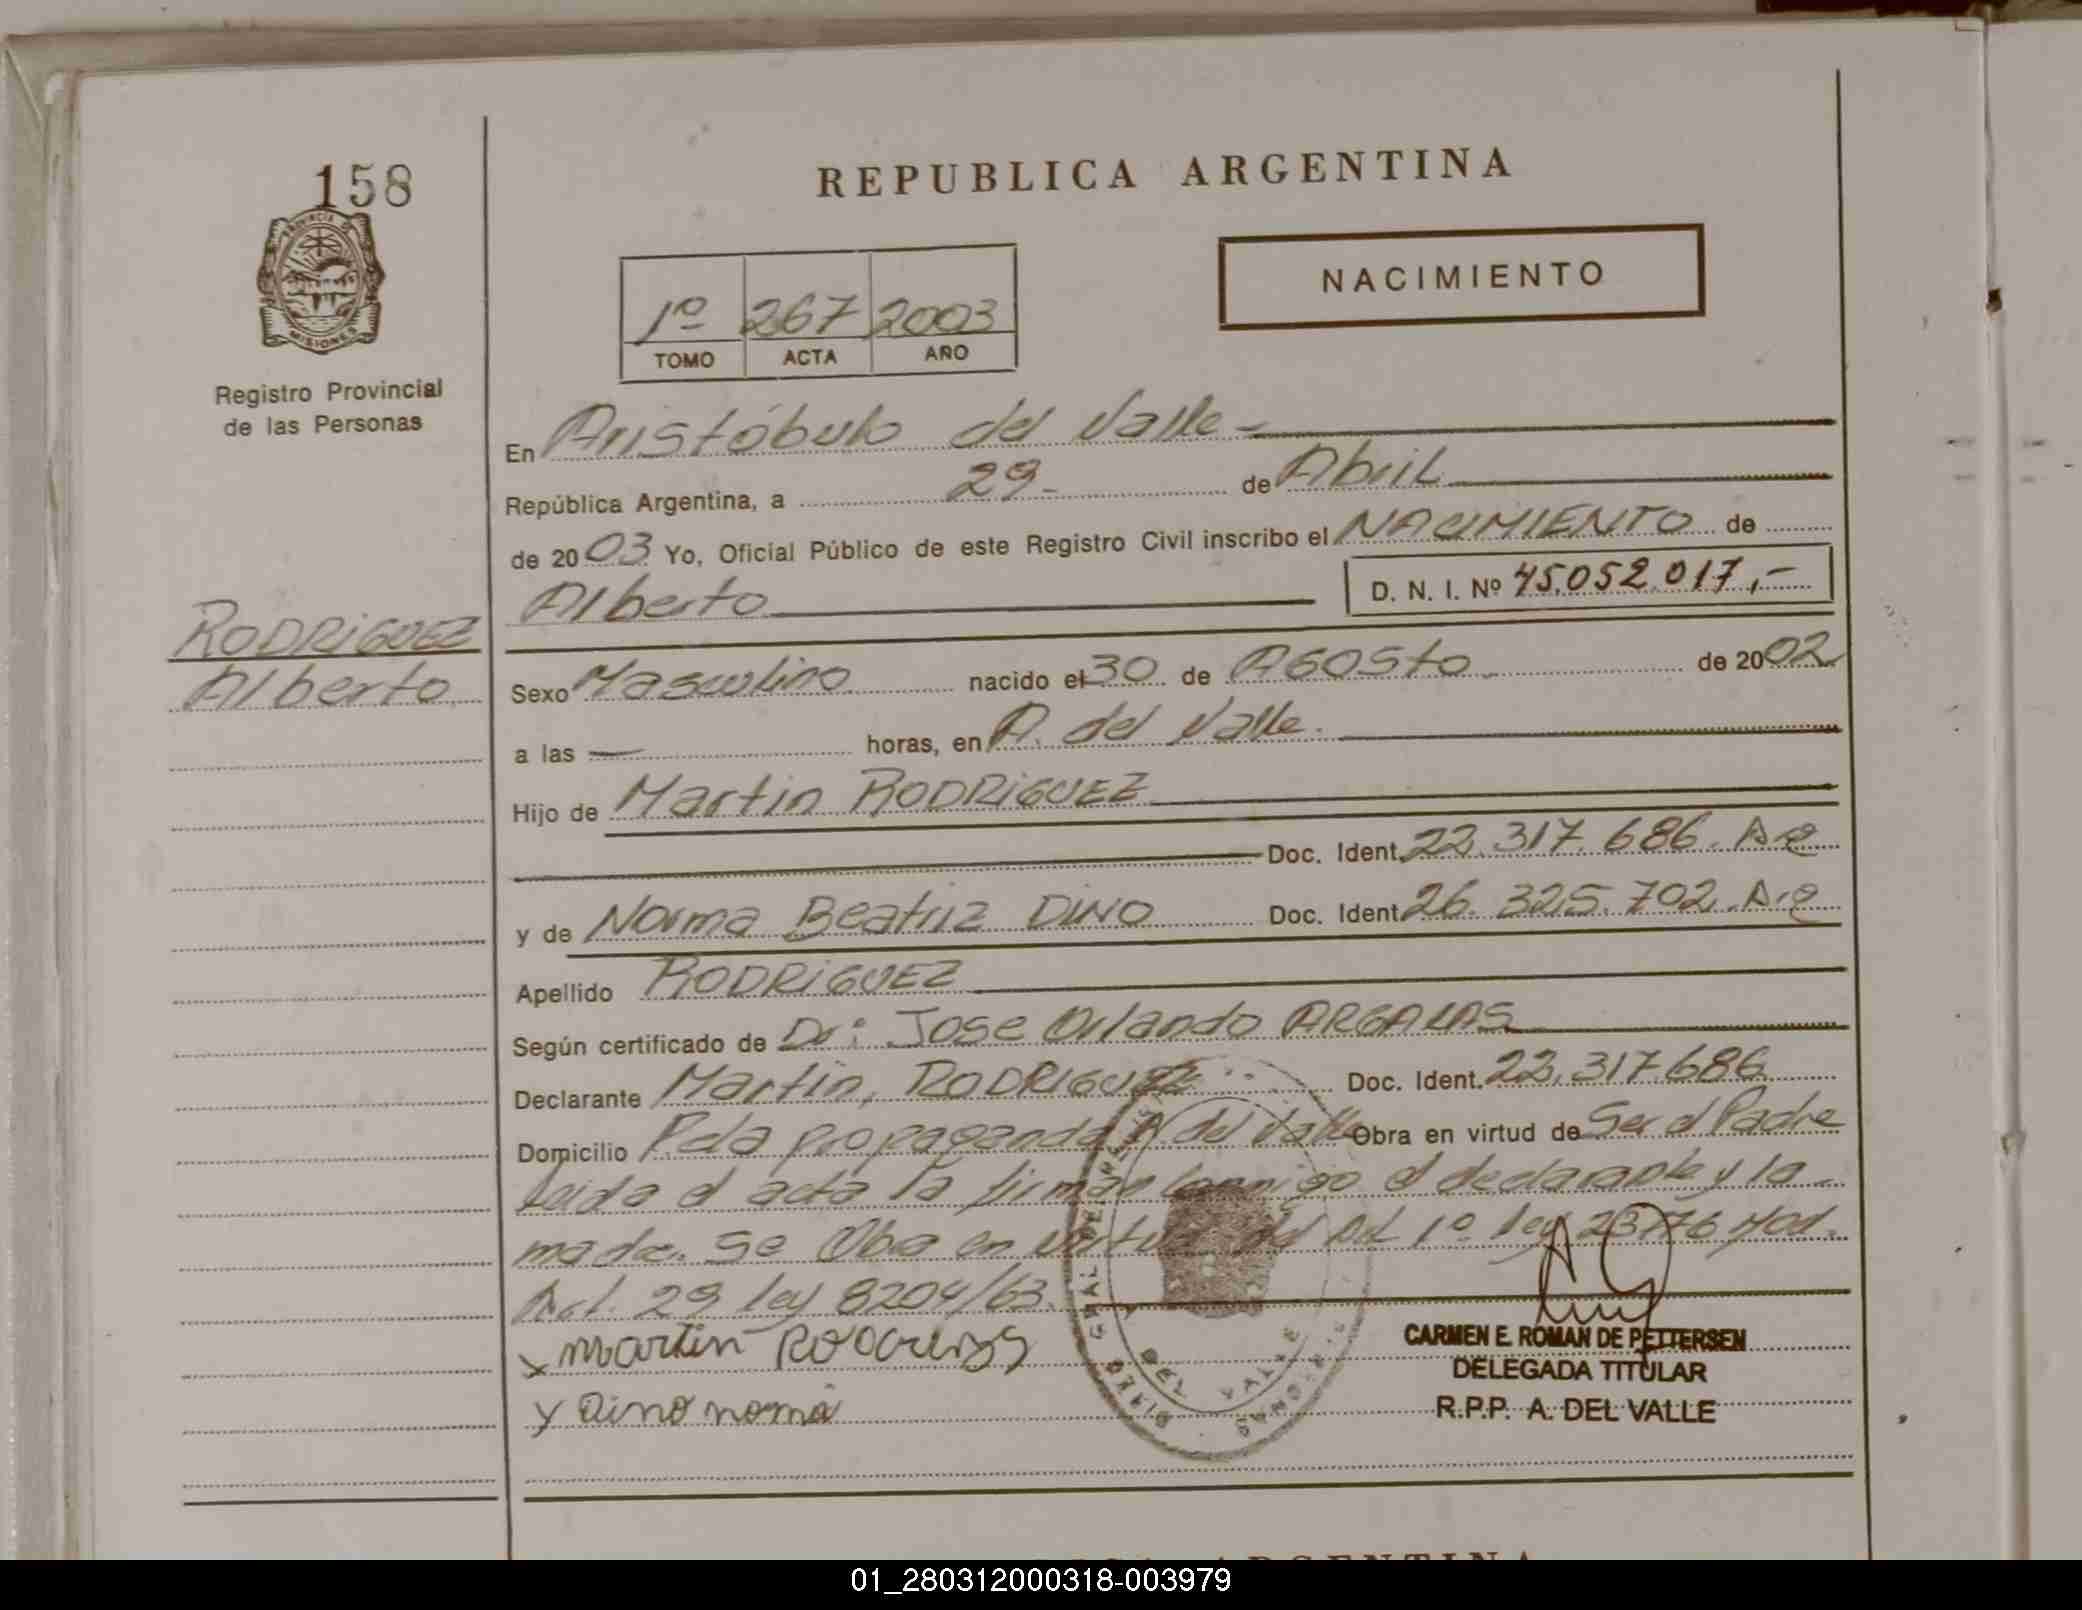 158
REPUBLICA ARGENTINA
PROVINCIA DE
MISIONES
NACIMIENTO
1º 267 2003
TOMO ACTA AÑO
Registro Provincial
de las Personas
En Aristóbulo del Valle -
República Argentina, a 29- de Abril
de 2003 Yo, Oficial Público de este Registro Civil inscribo el NACIMIENTO de
Alberto D. N. I. Nº 45.052.017,-
RODRIGUEZ
Alberto
Sexo Masculino nacido el 30 de AGOSto de 2002
a las — horas, en A. del Valle.
Hijo de Martin RODRIGUEZ
Doc. Ident. 22.317.686. Arg
y de Norma Beatriz DINO Doc. Ident. 26.325.702. Arg
Apellido RODRIGUEZ
Según certificado de Dr: Jose Orlando
Declarante Martin, RODRIGUEZ Doc. Ident. 22.317.686
Domicilio Pda propaganda A del Valle Obra en virtud de Ser el Padre
Leida el acta la firman conmigo el declarante y la
madre. Se Obra en virtud del Art 1º ley Mod.
Art. 29 ley 8204/63.
x martin
y Dino noma
CARMEN E. ROMAN DE PETTERSEN
DELEGADA TITULAR
R.P.P. A. DEL VALLE
DEL VALLE
ARGENTINA
01_280312000318-003979